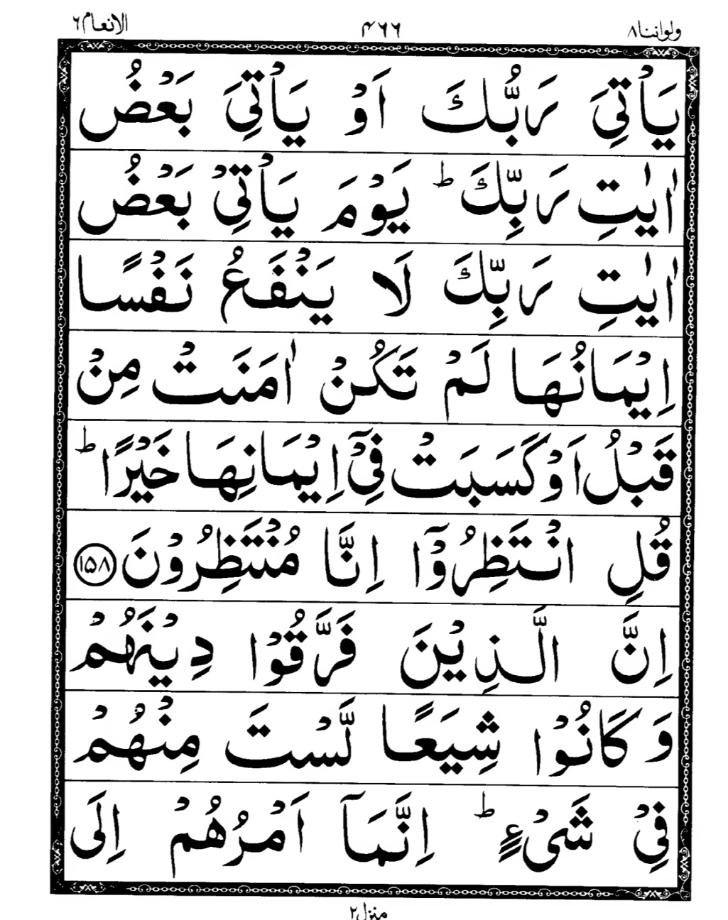 ولواننا٨ ۴۶۶ الانعام٦
يَاْتِيَ رَبُّكَ اَوْ يَاْتِيَ بَعْضُ
اٰيٰتِ رَبِّكَ ؕ يَوْمَ يَاْتِيْ بَعْضُ
اٰيٰتِ رَبِّكَ لَا يَنْفَعُ نَفْسًا
اِيْمَانُهَا لَمْ تَكُنْ اٰمَنَتْ مِنْ
قَبْلُ اَوْ كَسَبَتْ فِيْۤ اِيْمَانِهَا خَيْرًا ؕ
قُلِ انْتَظِرُوْۤا اِنَّا مُنْتَظِرُوْنَ ﴿۱۵۸﴾
اِنَّ الَّذِيْنَ فَرَّقُوْا دِيْنَهُمْ
وَ كَانُوْا شِيَعًا لَّسْتَ مِنْهُمْ
فِيْ شَيْءٍ ؕ اِنَّمَاۤ اَمْرُهُمْ اِلَى
منزل٢